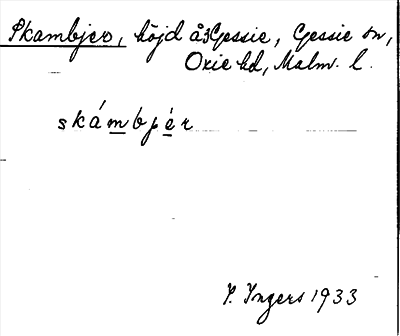 Skambjer, höjd å Gessie, Gessie sn,
Oxie hd, Malm. l.
skámbjér
I. Ingers 1933